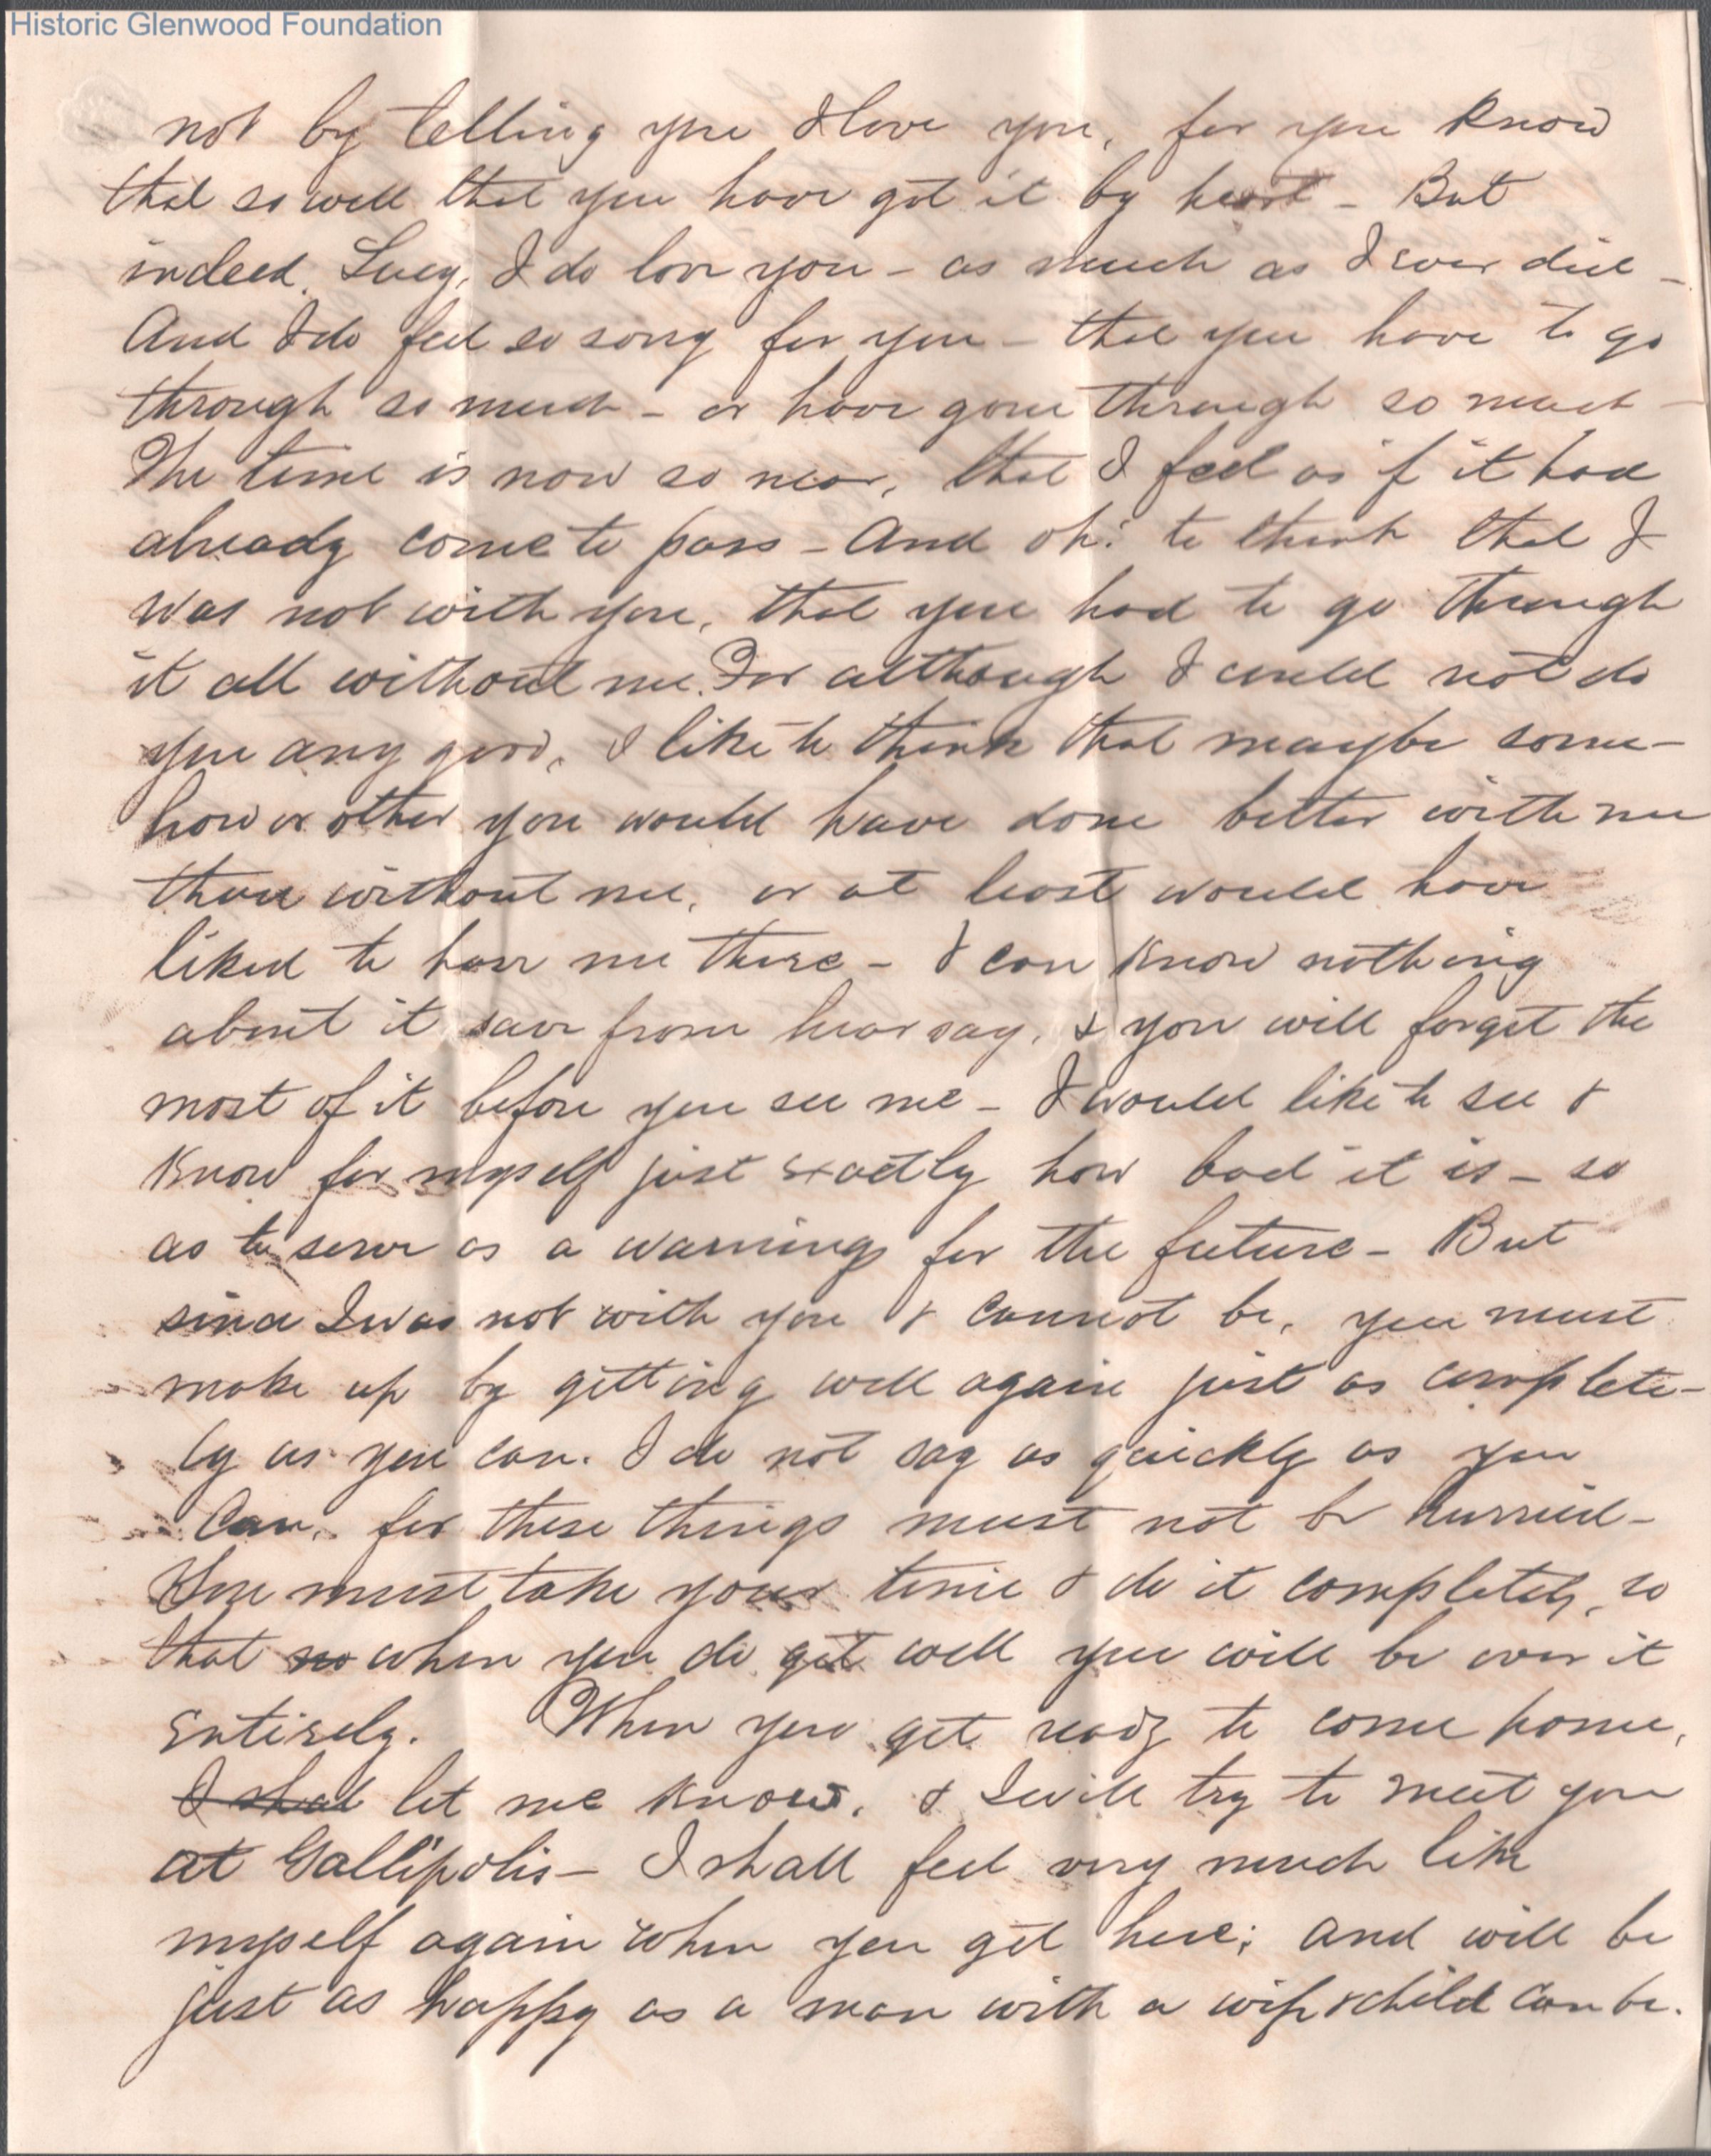 Historic Glenwood Foundation
not by telling you I love you, for you know
that so well that you have got it by heart - But
indeed, Lucy, I do love you - as much as I ever did -
And I do feel so sorry for you - that you have to go
through so much - or have gone through so much -
The time is now so near, that I feel as if it had
already come to pass - And oh! to think that I
was not with you, that you had to go through
it all without me. For although I could not do
you any good, I like to think that maybe some-
how or other you would have done better with me
than without me, or at least would have
liked to have me there - I can know nothing
about it save from hearsay, & you will forget the
most of it before you see me - I would like to see &
know for myself just exactly how bad it is - so
as to serve as a warning for the future - But
since I was not with you & cannot be, you must
make up by getting well again just as complete-
ly as you can. I do not say as quickly as you
can, for these things must not be hurried -
You must take your time & do it completely, so
that no when you do get well you will be over it
entirely. When you get ready to come home,
I shal let me know, & I will try to meet you
at Gallipolis - I shall feel very much like
myself again when you get here; and will be
just as happy as a man with a wife & child can be.